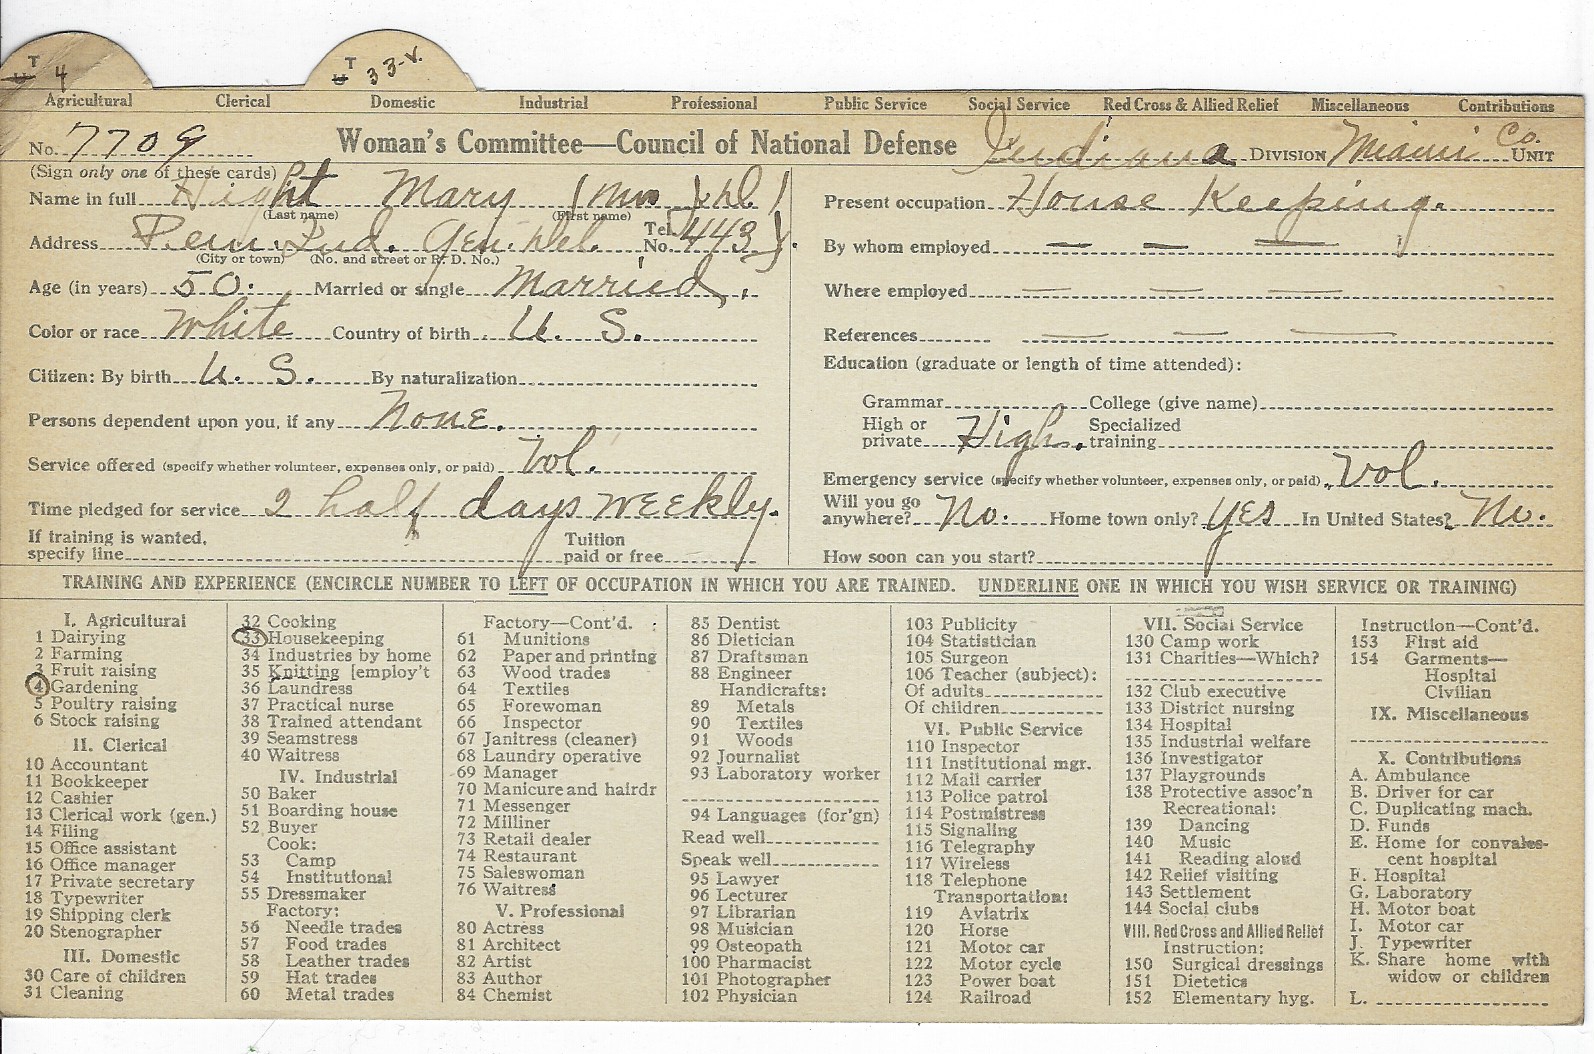 T 4
T 33-v.
Agricultural Clerical Domestic Industrial Professional Public Service Social Service Red Cross & Allied Relief Miscellaneous Contributions
No. 7709 Woman's Committee—Council of National Defense Indiana DIVISION Miami Co. UNIT
(Sign only one of these cards)
Name in full Hight Mary (Mrs
(Last name) (First name)
Address Peru Ind. Gen. Del. Tel. No. 443
(City or town) (No. and street or R. D. No.)
Age (in years) 50. Married or single Married.
Color or race White Country of birth U. S.
Citizen: By birth U. S. By naturalization
Persons dependent upon you, if any None.
Service offered (specify whether volunteer, expenses only, or paid) Vol.
Time pledged for service 2 half days weekly.
If training is wanted, specify line Tuition paid or free
Present occupation House Keeping.
By whom employed — — —
Where employed — — —
References — — —
Education (graduate or length of time attended):
Grammar College (give name)
High or private High. Specialized training
Emergency service (specify whether volunteer, expenses only, or paid) Vol.
Will you go anywhere? No. Home town only? Yes In United States? No.
How soon can you start?
TRAINING AND EXPERIENCE (ENCIRCLE NUMBER TO LEFT OF OCCUPATION IN WHICH YOU ARE TRAINED. UNDERLINE ONE IN WHICH YOU WISH SERVICE OR TRAINING)
I. Agricultural
1 Dairying
2 Farming
3 Fruit raising
4 Gardening
5 Poultry raising
6 Stock raising
II. Clerical
10 Accountant
11 Bookkeeper
12 Cashier
13 Clerical work (gen.)
14 Filing
15 Office assistant
16 Office manager
17 Private secretary
18 Typewriter
19 Shipping clerk
20 Stenographer
III. Domestic
30 Care of children
31 Cleaning
32 Cooking
33 Housekeeping
34 Industries by home
35 Knitting [employ't
36 Laundress
37 Practical nurse
38 Trained attendant
39 Seamstress
40 Waitress
IV. Industrial
50 Baker
51 Boarding house
52 Buyer
Cook:
53 Camp
54 Institutional
55 Dressmaker
Factory:
56 Needle trades
57 Food trades
58 Leather trades
59 Hat trades
60 Metal trades
Factory—Cont'd. :
61 Munitions
62 Paper and printing
63 Wood trades
64 Textiles
65 Forewoman
66 Inspector
67 Janitress (cleaner)
68 Laundry operative
69 Manager
70 Manicure and hairdr
71 Messenger
72 Milliner
73 Retail dealer
74 Restaurant
75 Saleswoman
76 Waitress
V. Professional
80 Actress
81 Architect
82 Artist
83 Author
84 Chemist
85 Dentist
86 Dietician
87 Draftsman
88 Engineer
Handicrafts:
89 Metals
90 Textiles
91 Woods
92 Journalist
93 Laboratory worker
94 Languages (for'gn)
Read well
Speak well
95 Lawyer
96 Lecturer
97 Librarian
98 Musician
99 Osteopath
100 Pharmacist
101 Photographer
102 Physician
103 Publicity
104 Statistician
105 Surgeon
106 Teacher (subject):
Of adults
Of children
VI. Public Service
110 Inspector
111 Institutional mgr.
112 Mail carrier
113 Police patrol
114 Postmistress
115 Signaling
116 Telegraphy
117 Wireless
118 Telephone
Transportation:
119 Aviatrix
120 Horse
121 Motor car
122 Motor cycle
123 Power boat
124 Railroad
VII. Social Service
130 Camp work
131 Charities—Which?
132 Club executive
133 District nursing
134 Hospital
135 Industrial welfare
136 Investigator
137 Playgrounds
138 Protective assoc'n
Recreational:
139 Dancing
140 Music
141 Reading aloud
142 Relief visiting
143 Settlement
144 Social clubs
VIII. Red Cross and Allied Relief
Instruction:
150 Surgical dressings
151 Dietetics
152 Elementary hyg.
Instruction—Cont'd.
153 First aid
154 Garments—
Hospital
Civilian
IX. Miscellaneous
X. Contributions
A. Ambulance
B. Driver for car
C. Duplicating mach.
D. Funds
E. Home for convales-
cent hospital
F. Hospital
G. Laboratory
H. Motor boat
I. Motor car
J. Typewriter
K. Share home with
widow or children
L.